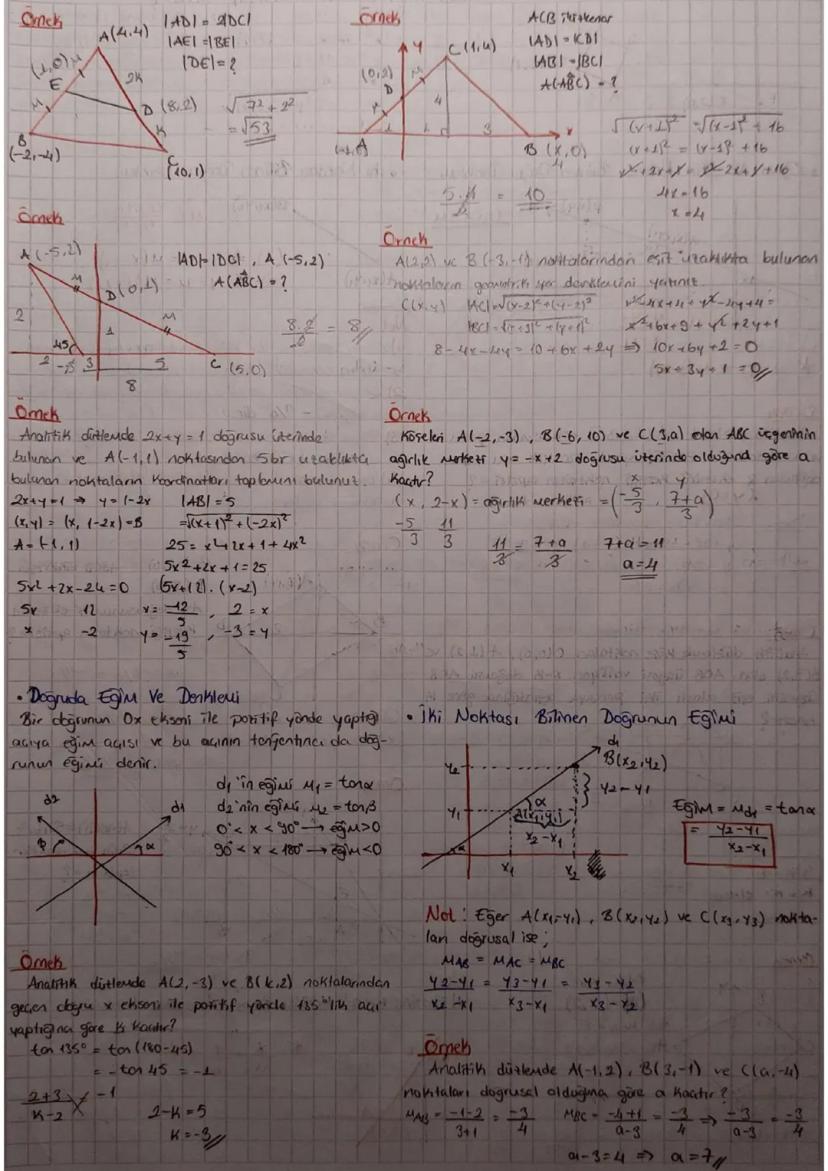 Örnek
A(4,4)
|AD| = 2|DC|
|AE| = |BE|
|DE| = ?
(1,0)
E
2K
D (8,2)
K
B
(-2,-4)
C
(10,1)
√7²+2²
= √53
Örnek
y
C(1,4)
(0,2)
D
4
1
1
3
A
B (x,0)
4
x
ACB ikizkenar
|AD| = |CD|
|AB| = |BC|
A(ABC) = ?
√(x+1)² = √(x-1)² + 16
(x+1)² = (x-1)² + 16
x²+2x+1 = x²-2x+1+16
4x=16
x=4
= 10
Örnek
A(-5,2)
|AD|=|DC| , A (-5,2)
A(ABC) = ?
D(0,1)
2
1
45
2
-3
3
5
C (5,0)
8
8.2/2 = 8
Örnek
A(2,2) ve B(-3,-1) noktalarından eşit uzaklıkta bulunan
noktaların geometrik yer denklemini yazınız.
C(x,y) |AC|=√(x-2)²+(y-2)²
|BC|=√(x+3)²+(y+1)²
x²-4x+4+y²-4y+4=
x²+6x+9+y²+2y+1
8-4x-4y = 10+6x+2y ⇒ 10x+6y+2=0
5x+3y+1=0
Örnek
Analitik düzlemde 2x+y=1 doğrusu üzerinde
bulunan ve A(-1,1) noktasından 5br uzaklıkta
bulunan noktaların koordinatları toplamını bulunuz.
2x+y=1 ⇒ y=1-2x |AB|=5
(x,y) = (x, 1-2x)=B =√(x+1)²+(-2x)²
A=(-1,1) 25= x²+2x+1+4x²
5x²+2x+1=25
5x²+2x-24=0 (5x+12).(x-2)
5x 12 x= -12/5 , 2=x
x -2 y= -19/5 , -3=y
Örnek
Köşeleri A(-2,-3), B(-6,10) ve C(3,a) olan ABC üçgeninin
ağırlık merkezi y=-x+2 doğrusu üzerinde olduğuna göre a
kaçtır?
(x, 2-x) = ağırlık merkezi = (-5/3, 7+a/3)
x y
-5/3 11/3
11/3 = 7+a/3 7+a=11
a=4
• Doğruda Eğim Ve Denklemi
Bir doğrunun Ox ekseni ile pozitif yönde yaptığı
açıya eğim açısı ve bu açının tanjantına da doğ-
runun eğimi denir.
d1'in eğimi M1 = tanα
d2'nin eğimi M2 = tanβ
0°< x < 90° → eğim>0
90°< x < 180° → eğim<0
d2
d1
β
α
• İki Noktası Bilinen Doğrunun Eğimi
d1
B(x2,y2)
y2
y2-y1
α
y1
A(x1,y1)
x2-x1
α
x1
x2
Eğim = Md1 = tanα
= y2-y1/x2-x1
Not: Eğer A(x1,y1), B(x2,y2) ve C(x3,y3) nokta-
ları doğrusal ise;
MAB = MAC = MBC
y2-y1/x2-x1 = y3-y1/x3-x1 = y3-y2/x3-x2
Örnek
Analitik düzlemde A(2,-3) ve B(k,2) noktalarından
geçen doğru x ekseni ile pozitif yönde 135°'lik açı
yaptığına göre k kaçtır?
tan 135° = tan (180-45)
= -tan 45 = -1
2+3/K-2 = -1
2-K=5
K=-3
Örnek
Analitik düzlemde A(-1,2), B(3,-1) ve C(a,-4)
noktaları doğrusal olduğuna göre a kaçtır?
MAB = -1-2/3+1 = -3/4 MBC = -4+1/a-3 = -3/4 ⇒ -3/a-3 = -3/4
a-3=4 ⇒ a=7